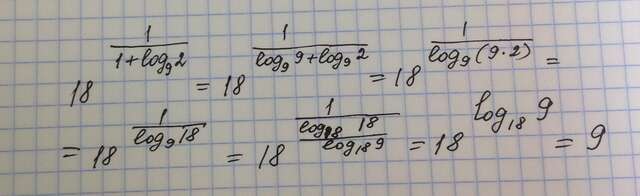 18^(1/(1+log₉2)) = 18^(1/(log₉9+log₉2)) = 18^(1/(log₉(9·2))) =
= 18^(1/(log₉18)) = 18^(1/((log₁₈18)/(log₁₈9))) = 18^(log₁₈9) = 9